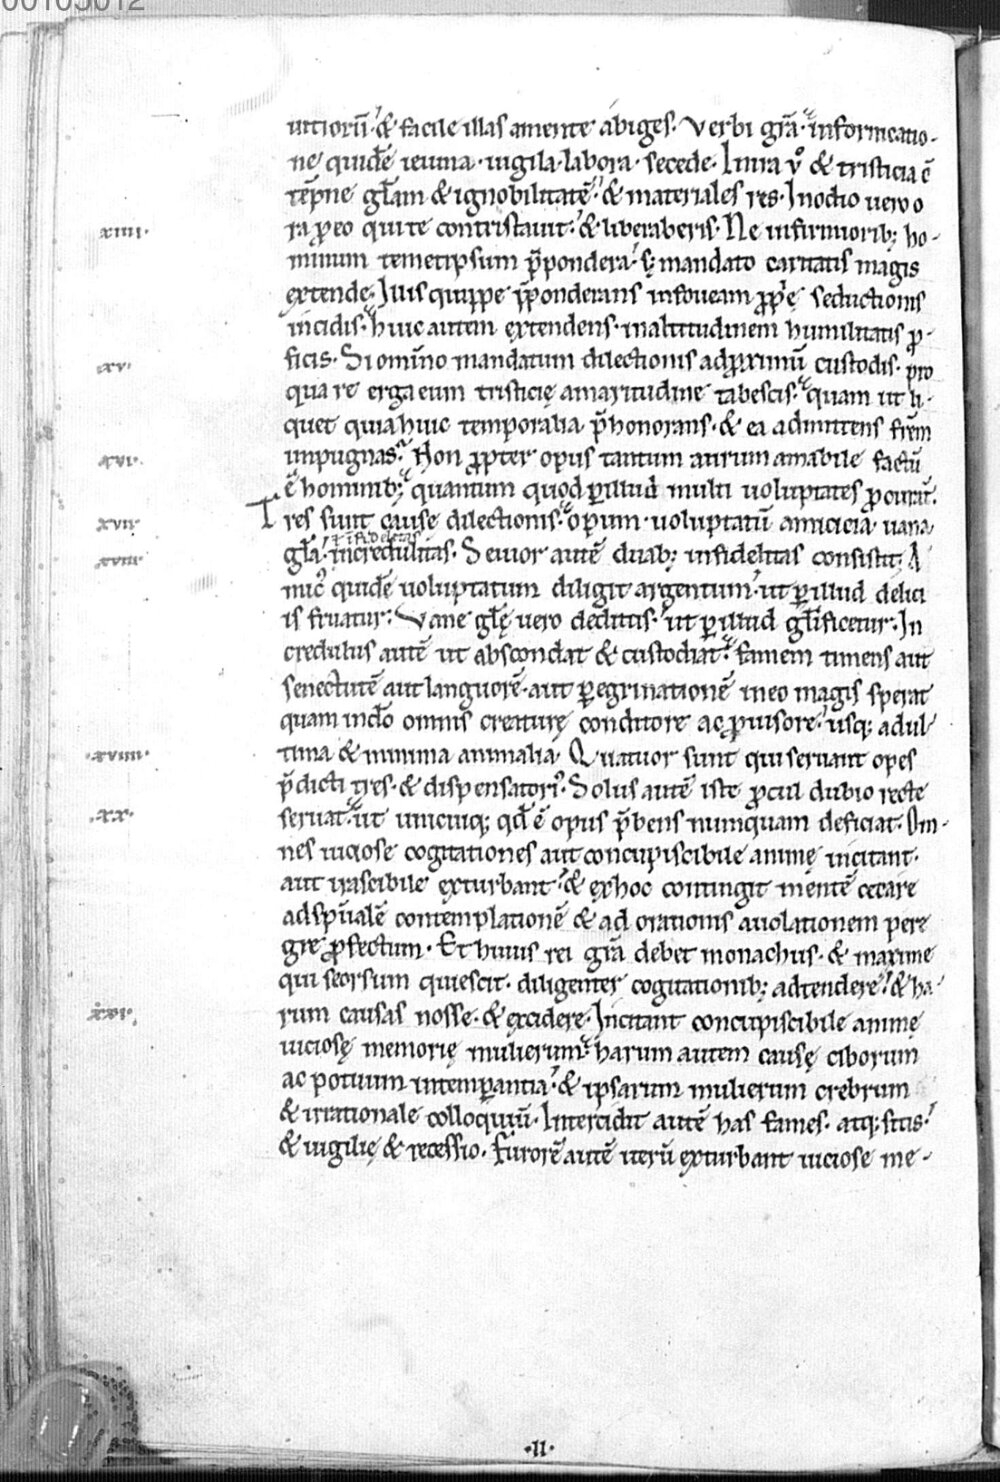 00105012
uitiorū· & facile illas amente abiges. Verbi grā. informicatio-
ne quidē ieiuna· uigila· labora· secede. Inira ṽ & tristicia ē
tēpne glām & ignobilitatē· & materiales res. Inodio uero o
xiiii. ra ꝓeo qui te contristauit· & liberaberis. Ne infirmiorib; ho-
minum temetipsum p̄pondera· s; mandato caritatis magis
extende. Illis quippe p̄ponderans infoueam ꝓp̄ę seductionis
incidis. huic autem extendens· inaltitudinem humilitatis ꝓ-
xv. ficis. Si omīno mandatum dilectionis adproximū custodis· pro
qua re erga eum tristicię amaritudine tabescis. quam ut li-
quet quia huic temporalia p̄honorans· & ea admittens frēm
xvi. impugnas. Non ꝓpter opus tantum aurum amabile factū
ē hominib; quantum quod ꝑillud multi uoluptates ꝓcurāt.
xvii. Tres sunt cause dilectionis· opum· uoluptatū amicicia· uana
ł infidelitas
xviii. glā· incredulitas. Senior autē duab; infidelitas consistit. A
mic᷒ quidē uoluptatum diligit argentum· ut ꝑillud delici
is fruatur. Vane glę uero deditus· ut ꝑillud glīficetur. In
credulus autē ut abscondat & custodiat. famem timens aut
senectutē aut languorē· aut ꝑegrinationē ineo magis sperat
quam indō omnis creaturę conditore ac ꝓuisore· usq; adul
.xviiii. tima & minima animalia. Quatuor sunt qui seruant opes
p̄dicti tres· & dispensator᷒. Solus autē iste ꝓcul dubio recte
.xx. seruat. ut unicuiq; qd̄ ē opus p̄bens numquam deficiat. Om-
nes uiciose cogitationes aut concupiscibile animę incitant·
aut irascibile exturbant· & exhoc contingit mentē cecare
adspūalē contemplationē & ad orationis auolationem pere
gre ꝓfectum. Et huius rei grā debet monachus· & maxime
qui seorsum quiescit· diligenter cogitationib; adtendere· & ha-
xxi. rum causas nosse· & excidere. Incitant concupiscibile animę
uiciosę memorię mulierum. harum autem causę ciborum
ac potuum intemꝑantia· & ipsarum mulierum crebrum
& irrationale colloquiū. Intercidit autē has fames· atq; sitis·
& uigilię & recessio. Furorē autē iterū exturbant uiciose me-
.II.